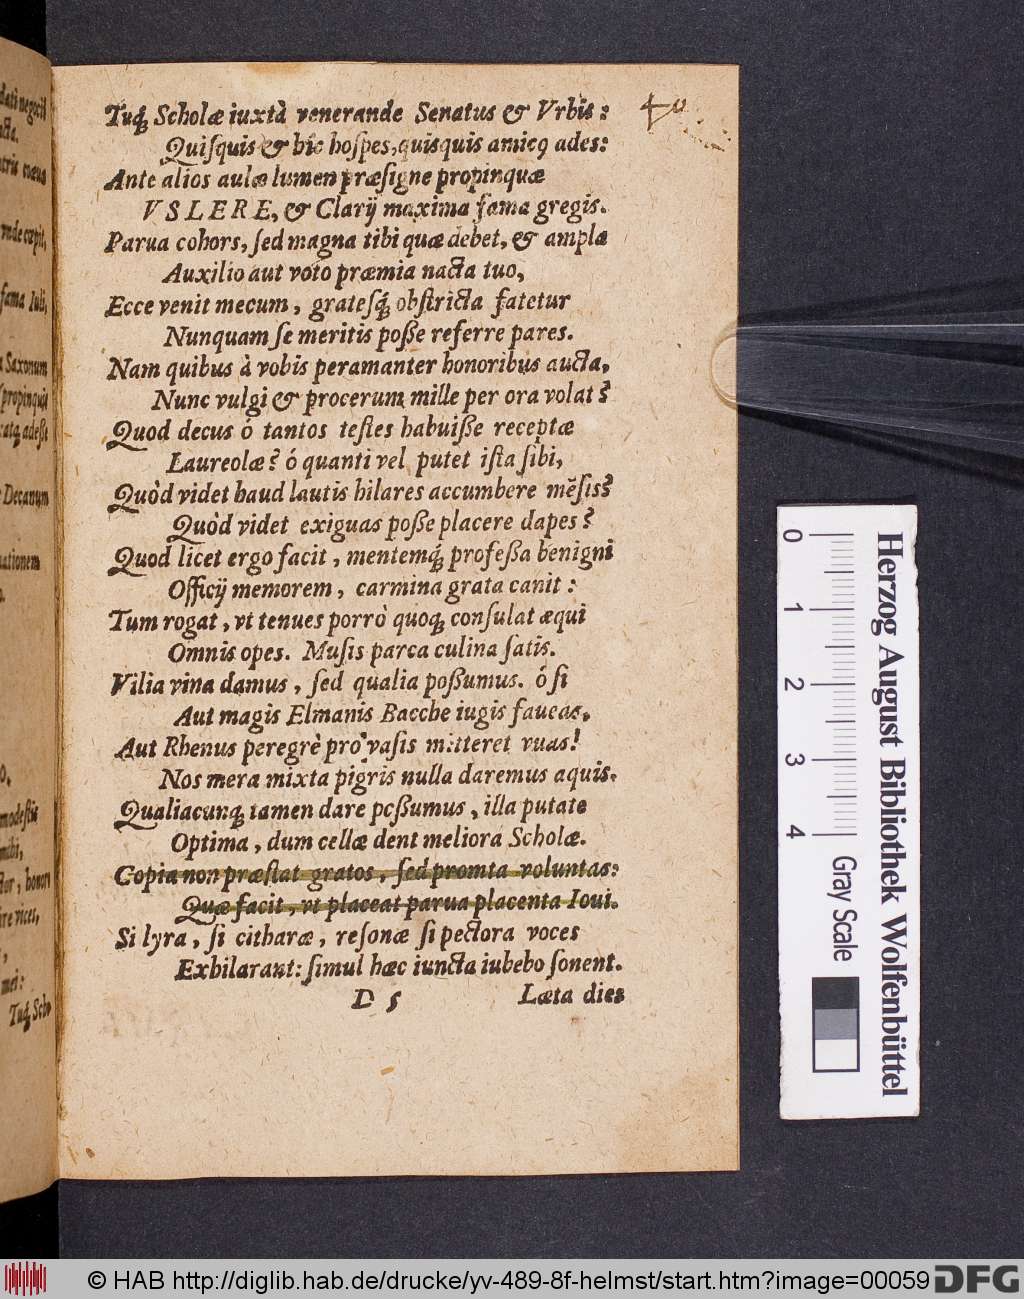 Tuq́; Scholæ iuxtà venerande Senatus & Vrbis:
Quiſquis & hîc hoſpes, quisquis amicꝰ ades:
Ante alios aulæ lumen præſigne propinquæ
VSLERE, & Clarij maxima fama gregis.
Parua cohors, ſed magna tibi quæ debet, & ampla
Auxilio aut voto præmia nacta tuo,
Ecce venit mecum, grateſq́; obſtricta fatetur
Nunquam ſe meritis poſſe referre pares.
Nam quibus à vobis peramanter honoribus aucta,
Nunc vulgi & procerum mille per ora volat?
Quod decus ó tantos teſtes habuiſſe receptæ
Laureolæ? ó quanti vel putet iſta ſibi,
Quòd videt haud lautis hilares accumbere mẽſis?
Quòd videt exiguas poſſe placere dapes?
Quod licet ergo facit, mentemq́; profeſſa benigni
Officij memorem, carmina grata canit:
Tum rogat, vt tenues porrò quoq; conſulat æqui
Omnis opes. Muſis parca culina ſatis.
Vilia vina damus, ſed qualia poſſumus. ó ſi
Aut magis Elmanis Bacche iugis faueas,
Aut Rhenus peregrè pro vaſis mitteret vuas!
Nos mera mixta pigris nulla daremus aquis.
Qualiacunq; tamen dare poſſumus, illa putate
Optima, dum cellæ dent meliora Scholæ.
Copia non præſtat gratos, ſed promta voluntas:
Quæ facit, vt placeat parua placenta Ioui.
Si lyra, ſi citharæ, reſonæ ſi pectora voces
Exhilarant: ſimul hæc iuncta iubebo ſonent.
D 5
Læta dies
40
negocii
cta.
fama Iuli,
Saxonum
propinquis
Decanum
modeſtiæ
mihi,
vices,
mei:
Tuq́; Scho
0 1 2 3 4
Gray Scale
Herzog August Bibliothek Wolfenbüttel
© HAB http://diglib.hab.de/drucke/yv-489-8f-helmst/start.htm?image=00059
DFG